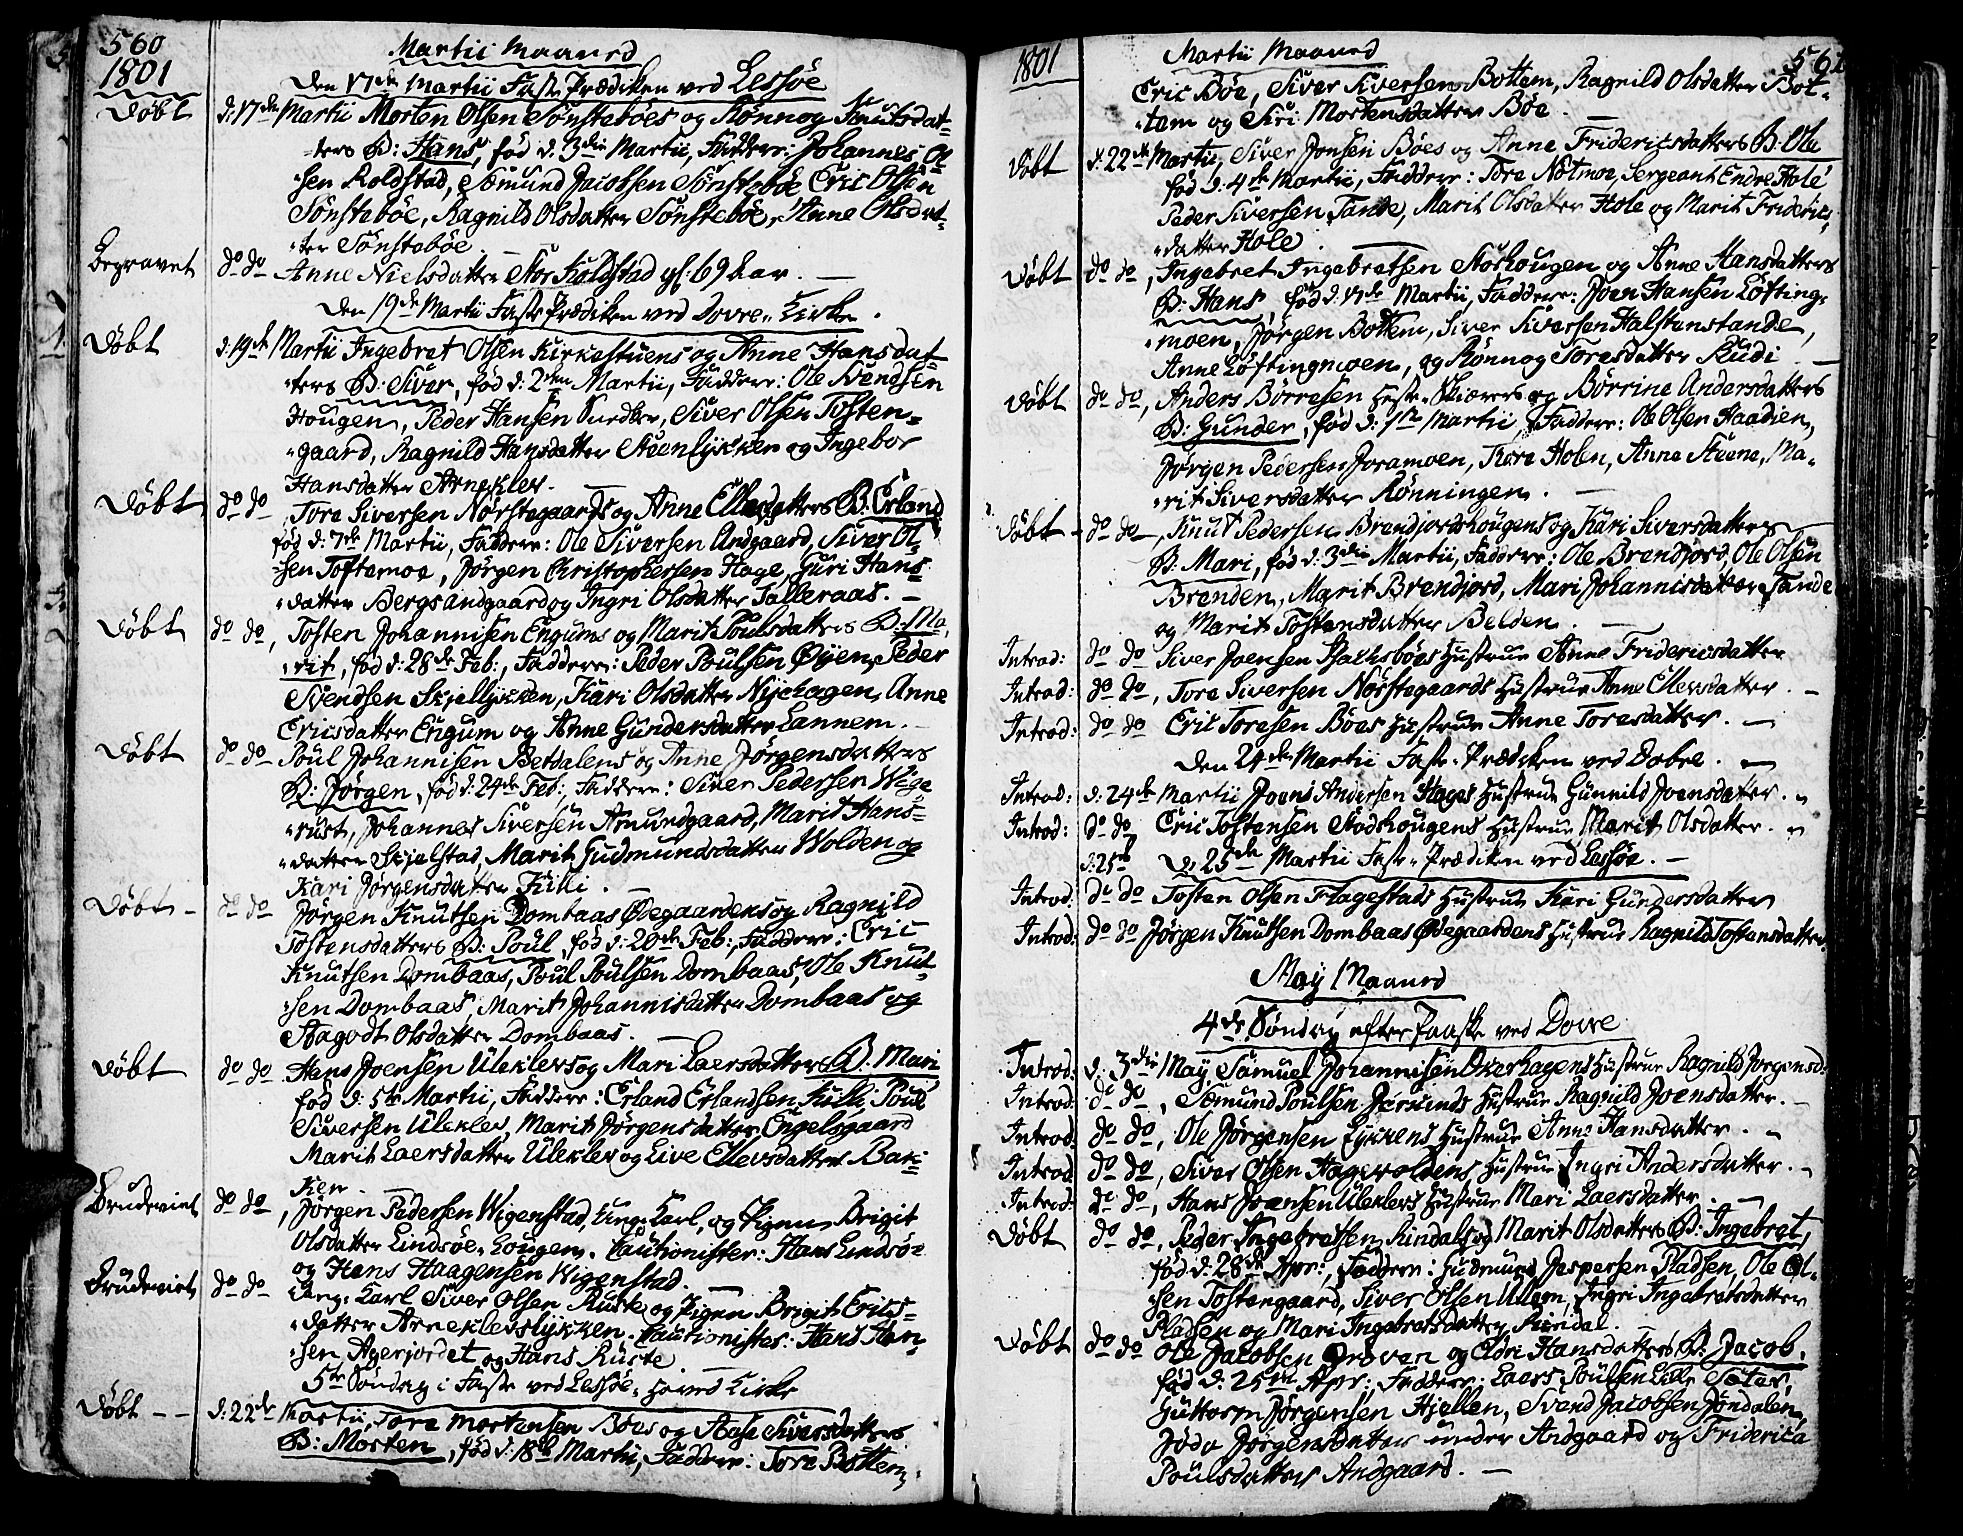 560
1801
Martii Maaned
Den 17de Martii Faste Prædiken ved Lessøe
Døbt d: 17de Martii Morten Olsen Sønstebøes og Rønnog Knutsdat-
-ters B: Hans, fød d: 3die Martii, Faddere: Johannes Ol-
-sen Roldstad, Sæmund Jacobsen Sønstebøe Eric Olsen
Sønstebøe, Ragnild Olsdatter Sønstebøe, Anne Olsdat-
-ter Sønstebøe.
Begravet do do Anne Nielsdatter Stor Koldstad gl: 69 Aar.
Den 19de Martii Faste Prædiken ved Dovre Kirke.
Døbt d: 19de Martii Ingebret Olsen Kirkestuens og Anne Hansdat-
-ters B: Siver, fød d: 2den Martii, Faddere: Ole Svendsen
Hougen, Peder Hansen, Siver Olsen Tosten-
-gaard, Ragnild Hansdatter Steenlykken og Ingebor
Hansdatter Arneklev.
Døbt do do Tore Siversen Nørstegaards og Anne Ellevsdatters B: Erland
fød d: 7de Martii, Faddere: Ole Siversen Andgaard, Siver Ol-
-sen Toftemoe, Jørgen Christophersen Hage, Guri Hans-
-datter Bergsandgaard og Ingri Olsdatter Talleraas.
Døbt do do, Tosten Johannisen Engums og Marit Poulsdatters B: Ma-
-rit, fød d: 28de Feb:, Faddere: Peder Poulsen Øyen, Peder
Svendsen Skjellykken, Kari Olsdatter Nyehagen, Anne
Ericsdatter Engum og Anne Gundersdatter Lannem.
Døbt do do Poul Johannisen Betdalens og Anne Jørgensdatters
B: Jørgen, fød d: 24de Feb:, Faddere: Siver Pedersen Wige-
-rust, Johannes Siversen Arnundgaard, Marit Hans-
-datter Skjelstad, Marit Gudmundsdatter Wolden og
Kari Jørgensdatter Killi.
Døbt - do do Jørgen Knutsen Dombaas Ødegaardens og Ragnild
Tostensdatters B: Poul, fød d: 20de Feb:, Faddere: Eric
Knutsen Dombaas, Poul Poulsen Dombaas, Ole Knut-
-sen Dombaas, Marit Johannisdatter Dombaas og
Aagodt Olsdatter Dombaas.
Døbt do do Hans Joensen Ulekleves og Mari Laersdatters B: Mari
fød d: 5te Martii, Faddere: Erland Erlandsen Killi, Poul
Siversen Uleklev, Marit Jørgensdatter Engelsgaard
Marit Laersdatter Uleklev og Live Ellevsdatter Bak-
-ken.
Brudeviet do do, Jørgen Pedersen Wigenstad, Ung-Karl, og Pigen Brigit
Olsdatter Lindsøe-Lougen. Cautionister: Hans Lindsøe
og Hans Haagensen Wigenstad.
Brudeviet do do Ung-Karl Siver Olsen Ruste og Pigen Brigit Erics-
-datter Arneklevslykken. Cautionister: Hans Han-
-sen Agerjordet og Hans Ruste.
5te Søndag i Faste ved Lessøe-Hoved Kirke
Døbt - - d: 22de Martii, Tore Mortensen Bøes og Aase Siversdatters
B: Morten, fød d: 18de Martii, Faddere: Tore Bottem,
1801
Martii Maaned
561
Eric Bøe, Siver Siversen Bottem, Ragnild Olsdatter Bot-
-tem og Siri Mortensdatter Bøe.
Døbt d: 22de Martii, Siver Jonsen Bøes og Anne Fridericsdatters B: Ole
fød d: 4de Martii, Faddere: Tore Nørmoe, Sergeant Endre Hole
Peder Siversen Tande, Marit Olsdatter Hole og Marit Frideric-
-datter Hole.
Døbt do do, Ingebret Ingebretsen Storhougen og Anne Hansdatters
B: Hans, fød d: 17de Martii, Faddere: Joen Hansen Løfting-
-moen, Jørgen Bottem, Siver Siversen Halstenstande,
Anne Løftingmoen, og Rønnog Toresdatter Rudi
Døbt do do, Anders Børresen Heste-Skiærers og Børrine Andersdatters
B: Gunder, fød d: 1ste Martii, Faddere: Ole Olsen Haadien,
Jørgen Pedersen Joramoen, Tore Holen, Anne Stuene, Ma-
-rit Siversdatter Rønningen.
Døbt - do do, Knut Pedersen Brendjordshougens og Kari Siversdatters
B: Mari, fød d: 3die Martii, Faddere: Ole Brendjord, Ole Olsen
Brenden, Marit Brendjord, Mari Johannisdatter Tande
og Marit Tostensdatter Belden.
Introd: do do Siver Joensen Bøes Hustrue Anne Fridericsdatter
Introd: do do, Tore Siversen Nørstegaards Hustrue Anne Ellevsdatter.
Introd: do do Eric Toresen Bøes Hustrue Anne Toresdatter.
Den 24de Martii Faste-Prædiken ved Dovre.
Introd: d: 24de Martii Joens Andersen Hages Hustrue Gunnild Joensdatter.
Introd: do do Eric Tostensen Stodshougens Hustrue Marit Olsdatter.
d: 25de D: 25de Martii Faste-Prædiken ved Lessøe.
Introd: do do Tosten Olsen Flagestads Hustrue Kari Gundersdatter
Introd: do do Jørgen Knutsen Dombaas Ødegaardens Hustrue Ragnild Tostensdatter.
May Maaned
4de Søndag efter Paaske ved Dovre
Introd: d: 3die May Samuel Johannisen Okerhagens Hustrue Ragnild Jørgensd:
Introd: do do, Sæmund Poulsen Hustrue Ragnild Joensdatter.
Introd: do do, Ole Jørgensen Lykkens Hustrue Anne Hansdatter.
Introd: do do, Siver Olsen Hagevoldens Hustrue Ingri Andersdatter.
Introd: do do, Hans Joensen Ulekleves Hustrue Mari Laersdatter.
Døbt do do, Peder Ingebretsen Rindals og Marit Olsdatters B: Ingebret,
fød d: 28de Apr:, Faddere: Gudmund Jespersen Pladsen, Ole Ol-
-sen Tostengaard, Siver Olsen Ulem, Ingri Ingebretsdatter
Pladsen og Mari Ingebretsdatter Rindal.
Døbt do do Ole Jacobsen Groven og Eldri Hansdatters B: Jacob.
fød d: 25de Apr: Faddere: Laers Poulsen Lille Sæter,
Guttorm Jørgensen Hjellen, Svend Jacobsen Jøndalen,
Jødo Jørgensdatter under Andgaard og Friderica
Poulsdatter Andgaard.